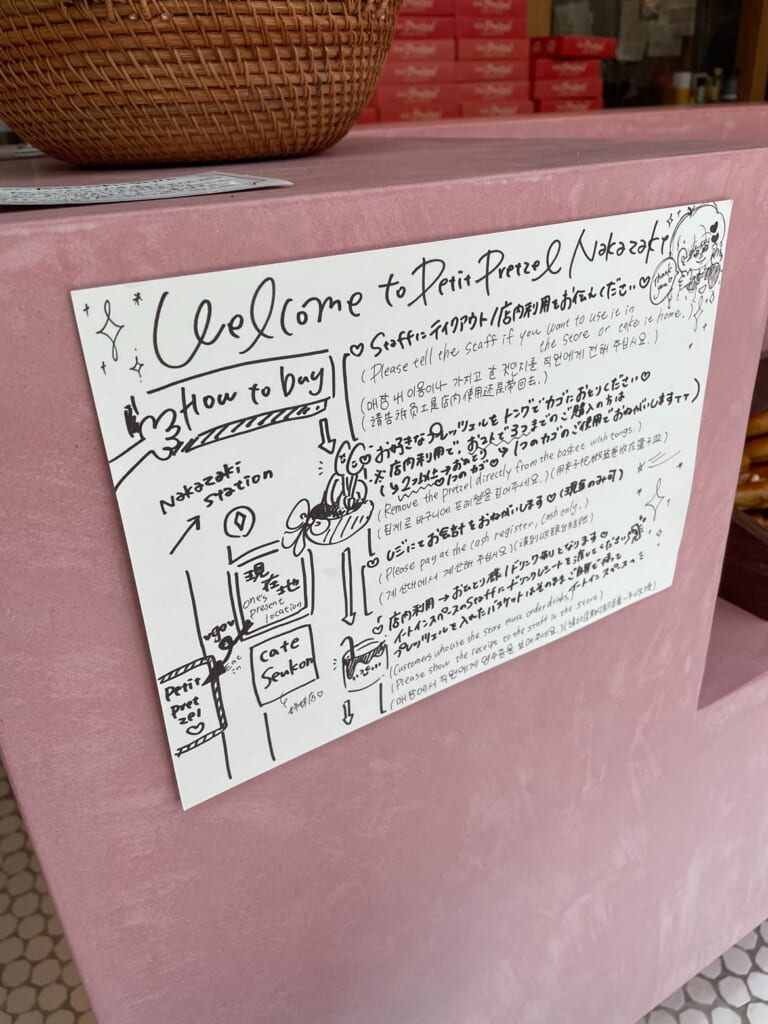 Welcome to Petit Pretzel Nakazaki
Thank you
How to buy
♡ Staffにテイクアウト/店内利用をお伝えください♡
(Please tell the staff if you want to use it in
the store or take it home.
(매장 내 이용이나 가지고 갈 것인지를 직원에게 전해 주십시오.)
(请告诉员工是店内使用还是带回去.)
♡ お好きなプレッツェルをトングでカゴにおとりください♡
※店内利用で、お2人で3つまでのご購入の方は
1つのカゴのご使用でおねがいします
1つのカゴ♡
(Remove the Pretzel directly from the basket with tongs.)
(집게로 바구니에 프레첼을 집어주세요.)
♡ レジにてお会計をおねがいします♡(現金のみ可)
(Please pay at the cash register, Cash only.)
(계산대에서 계산해 주십시오)
♡ 店内利用→おひとり様1ドリンク制りとなります♡
イートインスペースのStaffにドリンクレシートを渡してください
プレッツェルを入れたバスケットはそのままご自身で持って
イートインスペースへ
(Customers who use the store must order drinks.
(Please show the receipt to the staff in the store)
(매장에서 직원에게 영수증을 보여주세요.)
Nakazaki
station
現在地
one's
present
location
eat
in
cafe
Senkon
Petit
Pret
zel
♡